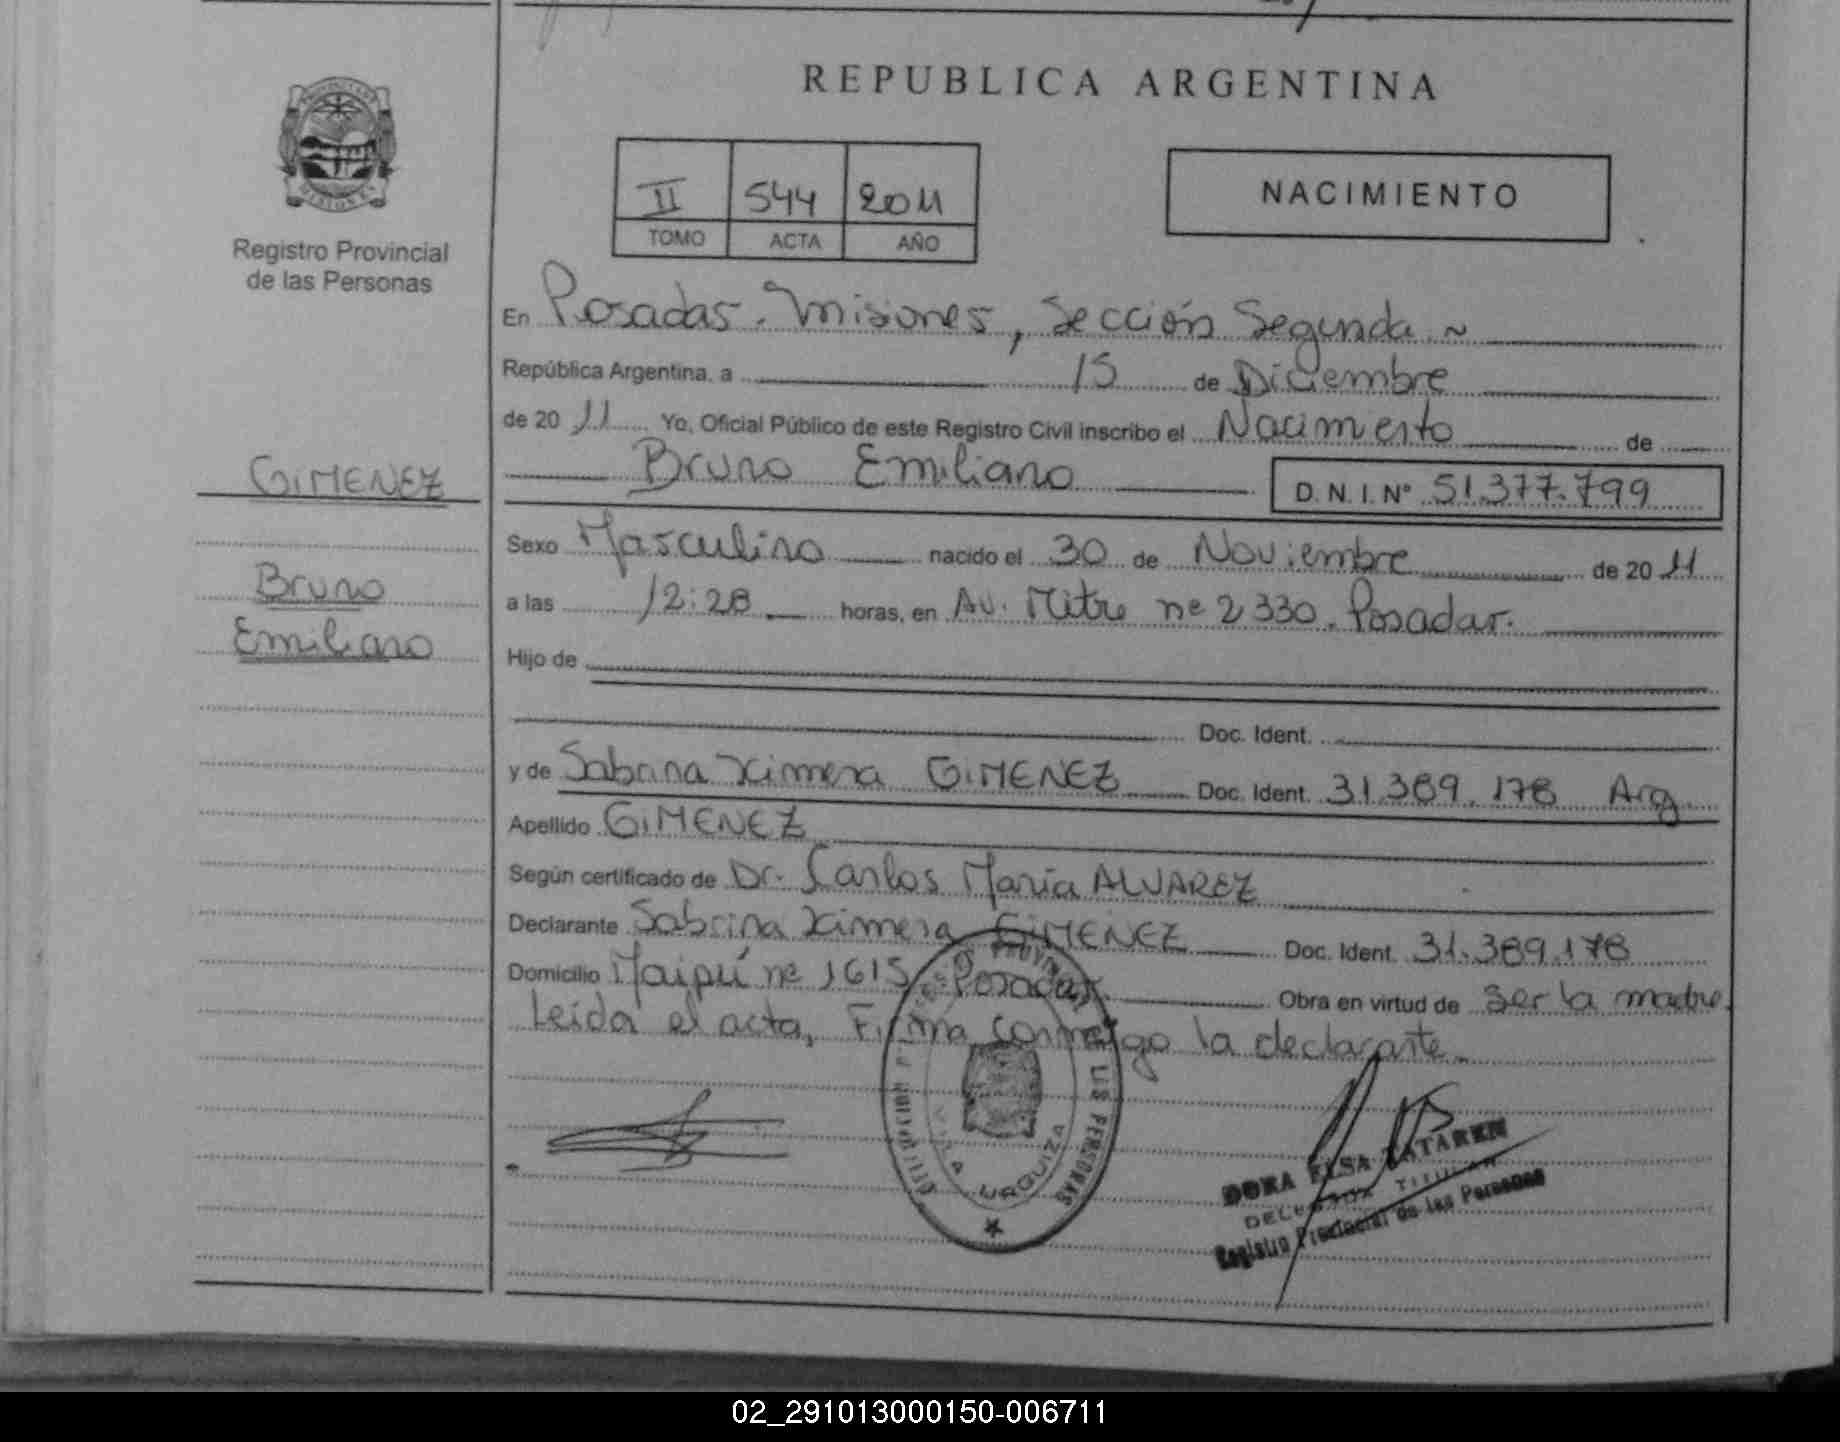 REPUBLICA ARGENTINA
Registro Provincial
de las Personas
II 544 2011
TOMO ACTA AÑO
NACIMIENTO
En Posadas. Misiones, Sección Segunda ~
República Argentina, a 15 de Diciembre
de 2011 Yo, Oficial Público de este Registro Civil inscribo el Nacimiento de
Bruno Emiliano D.N.I. Nº 51.377.799
GIMENEZ
Bruno
Emiliano
Sexo Masculino nacido el 30 de Noviembre de 2011
a las 12:28 horas, en Av. Mitre nº 2330. Posadas.
Hijo de
Doc. Ident.
y de Sabrina Ximena GIMENEZ Doc. Ident. 31.389.178 Arg.
Apellido GIMENEZ
Según certificado de Dr. Carlos María ALVAREZ
Declarante Sabrina Ximena GIMENEZ Doc. Ident. 31.389.178
Domicilio Maipú nº 1615 Posadas Obra en virtud de ser la madre.
Leída el acta, Firma conmigo la declarante.
VILLA URQUIZA
DORA ELSA
DELEGADA TITULAR
Registro Provincial de las Personas
02_291013000150-006711